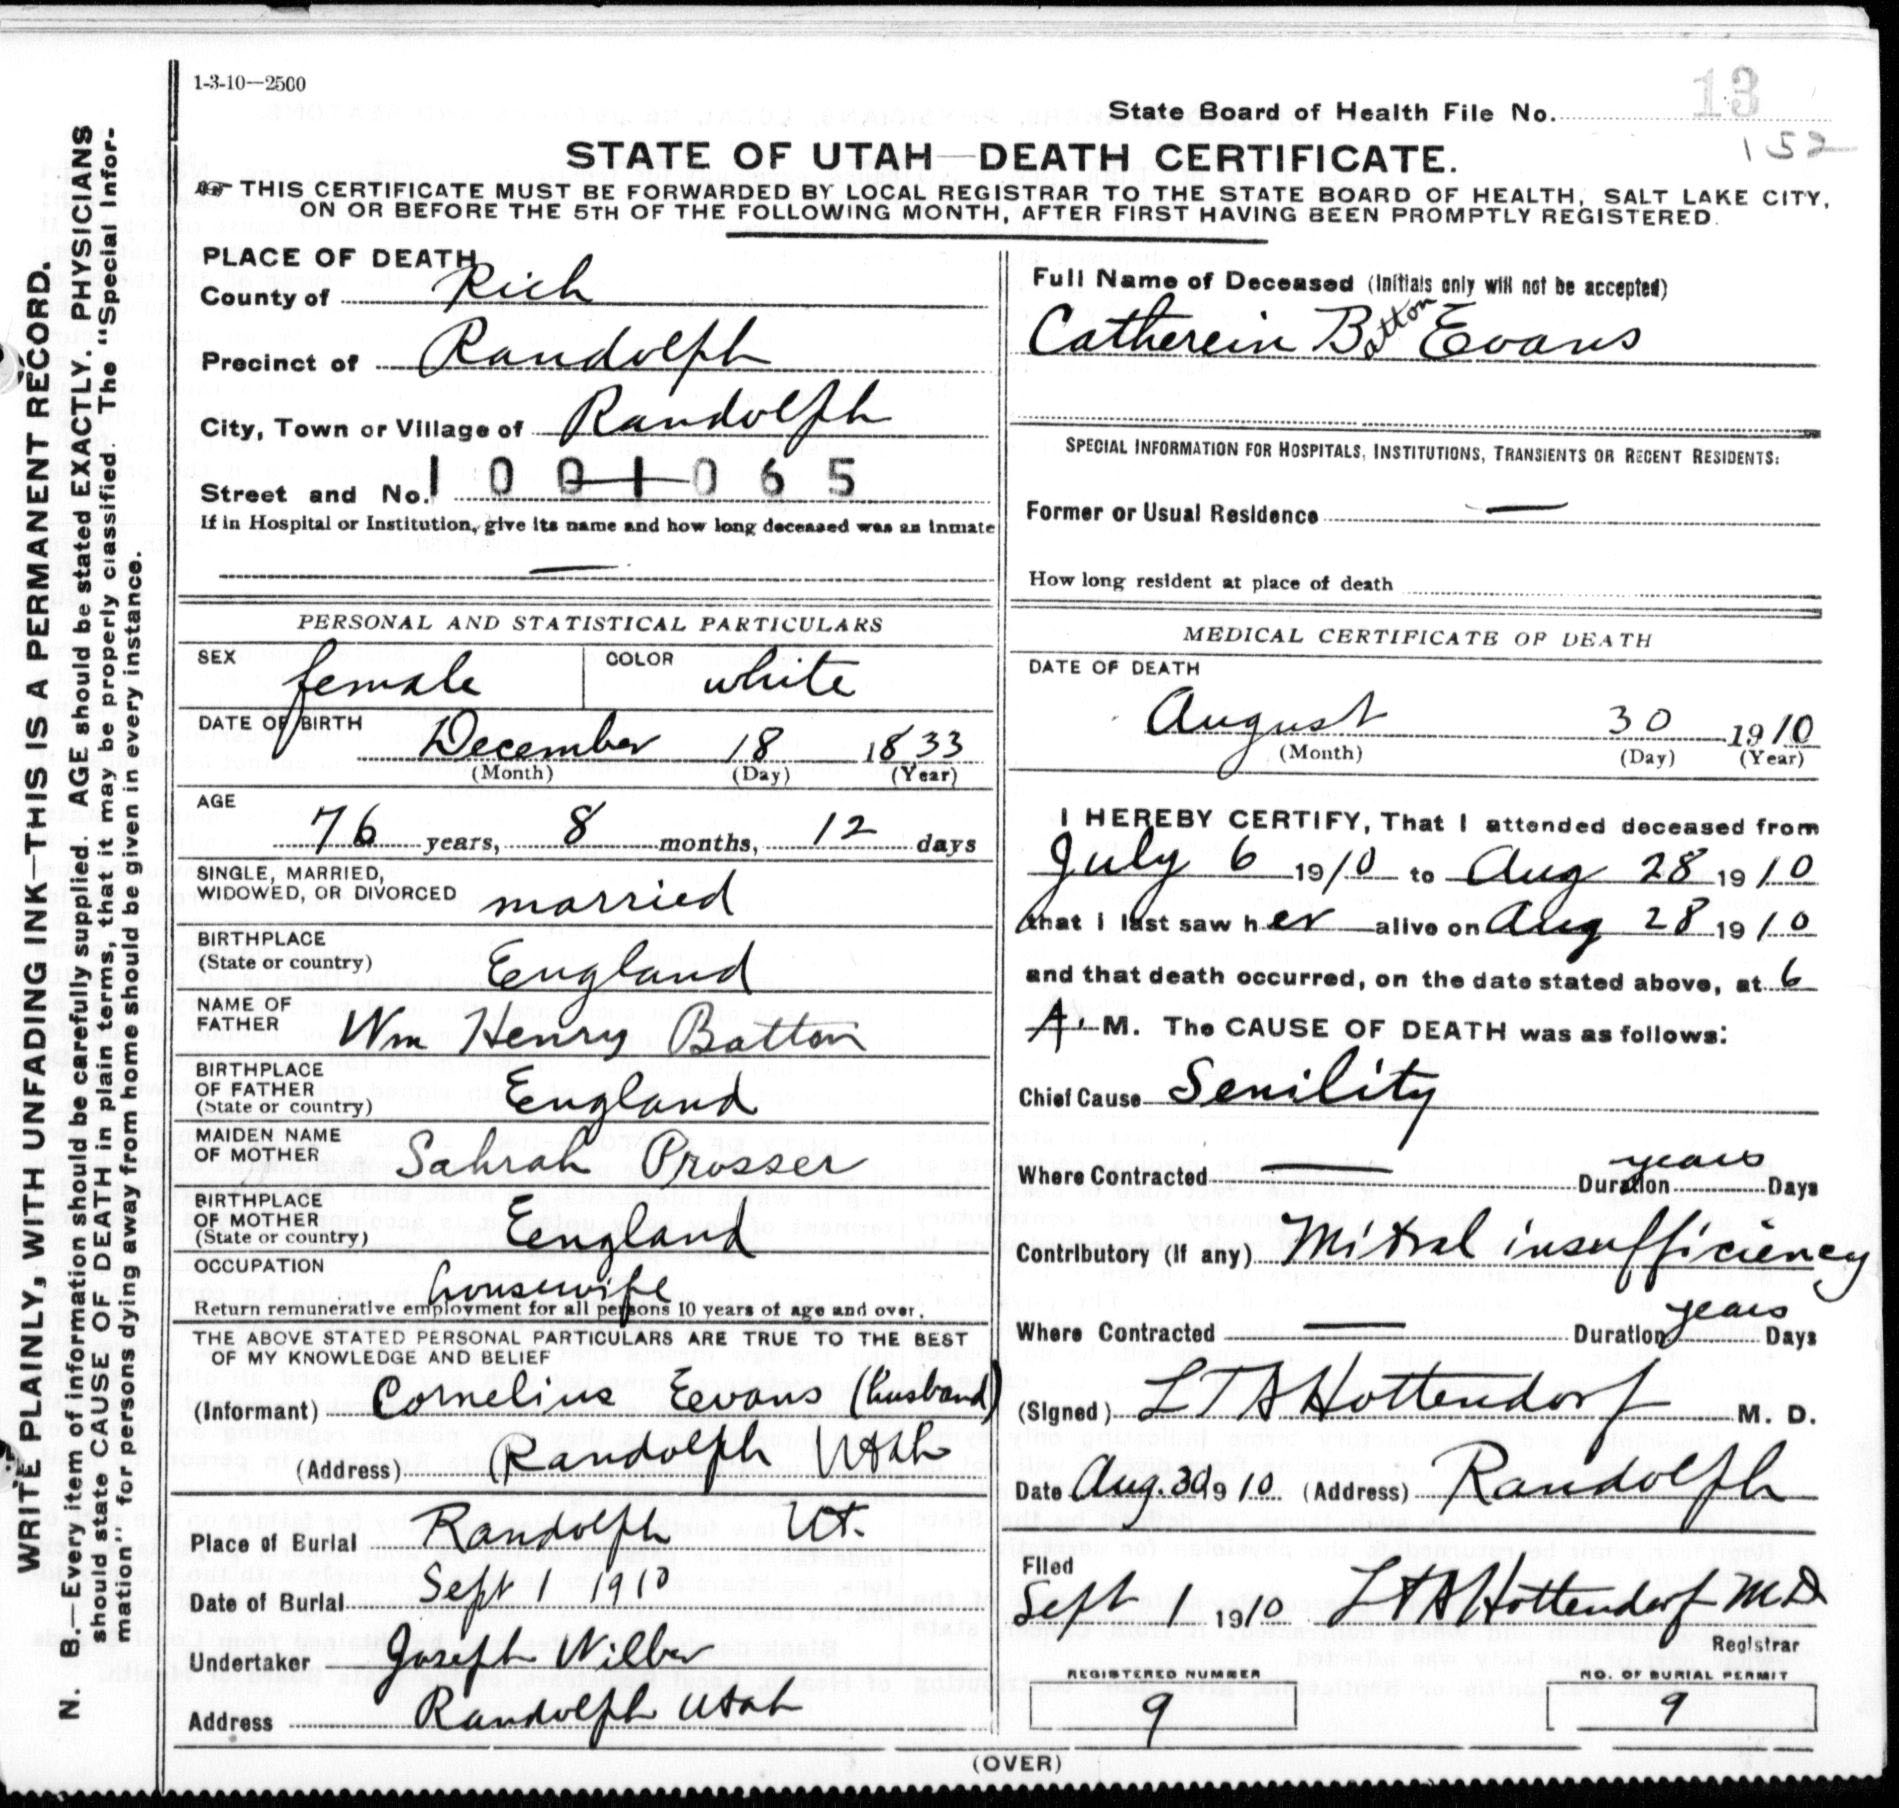 1-3-10—2500
State Board of Health File No. 13
152
STATE OF UTAH—DEATH CERTIFICATE.
THIS CERTIFICATE MUST BE FORWARDED BY LOCAL REGISTRAR TO THE STATE BOARD OF HEALTH, SALT LAKE CITY,
ON OR BEFORE THE 5TH OF THE FOLLOWING MONTH, AFTER FIRST HAVING BEEN PROMPTLY REGISTERED.
WRITE PLAINLY, WITH UNFADING INK—THIS IS A PERMANENT RECORD.
N. B.—Every item of information should be carefully supplied. AGE should be stated EXACTLY. PHYSICIANS
should state CAUSE OF DEATH in plain terms, that it may be properly classified. The "Special Infor-
mation" for persons dying away from home should be given in every instance.
PLACE OF DEATH
County of Rich
Precinct of Randolph
City, Town or Village of Randolph
Street and No. 1001065
If in Hospital or Institution, give its name and how long deceased was an inmate
—
PERSONAL AND STATISTICAL PARTICULARS
SEX female COLOR white
DATE OF BIRTH
December 18 1833
(Month) (Day) (Year)
AGE
76 years, 8 months, 12 days
SINGLE, MARRIED,
WIDOWED, OR DIVORCED married
BIRTHPLACE
(State or country) England
NAME OF
FATHER Wm Henry Batton
BIRTHPLACE
OF FATHER
(State or country) England
MAIDEN NAME
OF MOTHER Sahrah Prosser
BIRTHPLACE
OF MOTHER
(State or country) England
OCCUPATION
housewife
Return remunerative employment for all persons 10 years of age and over.
THE ABOVE STATED PERSONAL PARTICULARS ARE TRUE TO THE BEST
OF MY KNOWLEDGE AND BELIEF
(Informant) Cornelius Eevans (husband)
(Address) Randolph Utah
Place of Burial Randolph Ut.
Date of Burial Sept 1 1910
Undertaker Joseph Wilber
Address Randolph Utah
Full Name of Deceased (Initials only will not be accepted)
Catherein Batton Evans
SPECIAL INFORMATION FOR HOSPITALS, INSTITUTIONS, TRANSIENTS OR RECENT RESIDENTS:
Former or Usual Residence —
How long resident at place of death
MEDICAL CERTIFICATE OF DEATH
DATE OF DEATH
August 30 1910
(Month) (Day) (Year)
I HEREBY CERTIFY, That I attended deceased from
July 6 1910 to Aug 28 1910
that I last saw her alive on Aug 28 1910
and that death occurred, on the date stated above, at 6
A. M. The CAUSE OF DEATH was as follows:
Chief Cause Senility
Where Contracted — Duration years Days
Contributory (If any) Mitral insufficiency
Where Contracted — Duration years Days
(Signed) L T A Hottendorf M. D.
Date Aug. 30 1910 (Address) Randolph
Filed
Sept 1 1910 L T A Hottendorf M.D
Registrar
REGISTERED NUMBER NO. OF BURIAL PERMIT
9 9
(OVER)